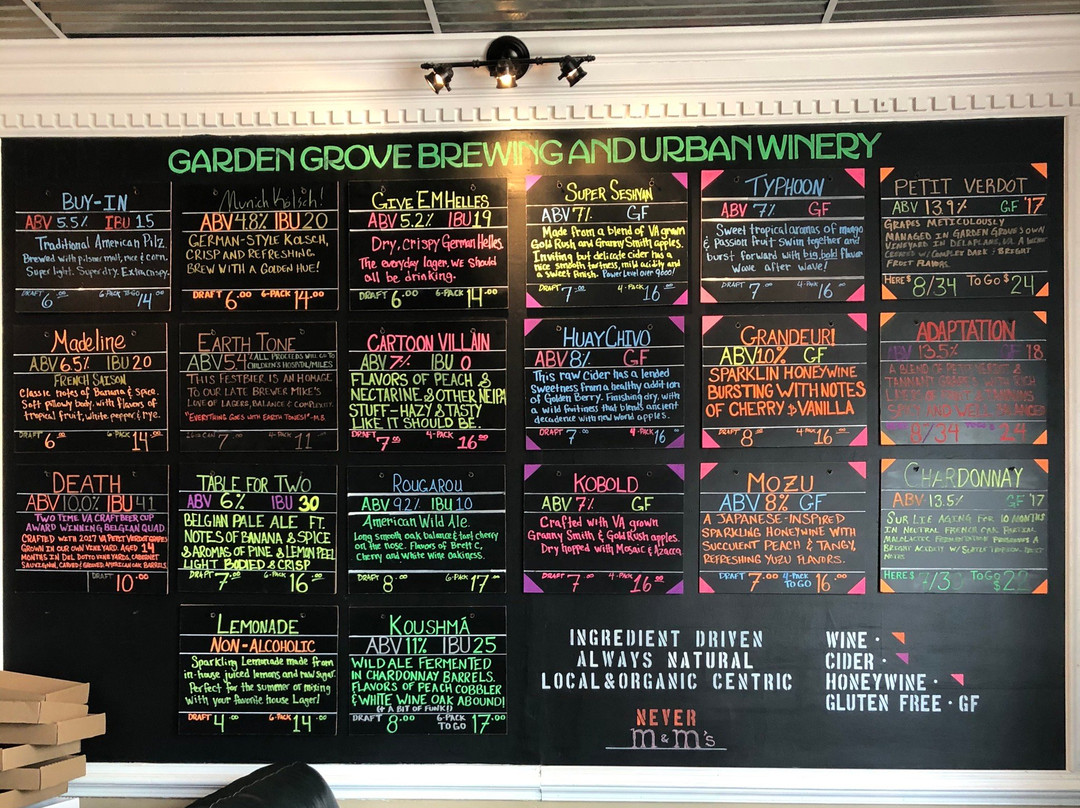 GARDEN GROVE BREWING AND URBAN WINERY
BUY-IN
ABV 5.5% IBU 15
Traditional American Pilz.
Brewed with pilsner malt, rice & corn.
Super light. Super dry. Extra crispy.
DRAFT 6.00 6-PACK TO GO 14
Munich Kölsch!
ABV 4.8% IBU 20
GERMAN-STYLE KOLSCH,
CRISP AND REFRESHING
BREW WITH A GOLDEN HUE!
DRAFT 6.00 6-PACK 14.00
GIVE 'EM HELLES
ABV 5.2% IBU 19
Dry, Crispy German Helles.
The everyday lager we should
all be drinking.
DRAFT 6.00 6-PACK 14.00
SUPER SESHYAN
ABV 7% GF
Made from a blend of VA grown
Gold Rush and Granny Smith apples.
Inviting but delicate cider has a
nice smooth tartness, mild acidity and
a sweet finish. Power level over 9000!
DRAFT 7.00 4-PACK 16
TYPHOON
ABV 7% GF
Sweet tropical aromas of mango
& passion fruit swim together and
burst forward with big, bold flavor
wave after wave!
DRAFT 7.00 4-PACK 16
PETIT VERDOT
ABV 13.9% GF '17
GRAPES METICULOUSLY
MANAGED IN GARDEN GROVE'S OWN
VINEYARD IN DELAPLANE, VA. A WINE
COMPLEX DARK + BRIGHT
FRUIT FLAVORS.
HERE $ 8/34 TO GO $ 24
Madeline
ABV 6.5% IBU 20
FRENCH SAISON
Classic notes of banana & spice.
Soft pillowy body, with flavors of
tropical fruit, white pepper & rye.
DRAFT 6.00 6-PACK 14.00
EARTH TONE
ABV 5.4 *ALL PROCEEDS WILL GO TO
CHILDREN'S HOSPITAL/MILES
THIS FESTBIER IS AN HOMAGE
TO OUR LATE BREWER MIKE'S
LOVE OF LAGERS, BALANCE & COMPLEXITY.
"EVERYTHING GOES WITH EARTH TONES!" -M.S.
CAN 7.00 4-PACK 11
CARTOON VILLAIN
ABV 7% IBU 0
FLAVORS OF PEACH &
NECTARINE & OTHER NEIPA
STUFF - HAZY & TASTY
LIKE IT SHOULD BE.
DRAFT 7.00 4-PACK 16.00
HUAY CHIVO
ABV 8% GF
This raw Cider has a lended
Sweetness from a healthy addition
of Golden Berry. Finishing dry, with
a wild fruitiness that blends ancient
decadence with new world apples.
DRAFT 7.00 4-PACK 16
GRANDEUR!
ABV 10% GF
SPARKLIN HONEYWINE
BURSTING WITH NOTES
OF CHERRY & VANILLA
DRAFT 8.00 4-PACK 16.00
ADAPTATION
ABV 13.5% GF 18
A BLEND OF PETIT VERDOT &
TANNAT
8/34 24
DEATH
ABV 10.0% IBU 41
TWO TIME VA CRAFT BEER CUP
AWARD WINNING BELGIAN QUAD.
CRAFTED WITH 2017 VA PETIT VERDOT GRAPES
GROWN IN OUR OWN VINEYARD. AGED 14
MONTHS IN DEL DOTTO VINEYARDS, CABERNET
SAUVIGNON, CARVED & GROOVED, AMERICAN OAK BARRELS.
DRAFT 10.00
TABLE FOR TWO
ABV 6% IBU 30
BELGIAN PALE ALE FT.
NOTES OF BANANA & SPICE
& AROMAS OF PINE & LEMON PEEL
LIGHT BODIED & CRISP
DRAFT 7.00 6-PACK 16.00
ROUGAROU
ABV 9.2% IBU 10
American Wild Ale.
Long smooth oak balance & tart cherry
on the nose. Flavors of Brett C,
Cherry and White Wine oakiness.
DRAFT 8.00 6-PACK 17.00
KOBOLD
ABV 7% GF
Crafted with VA grown
Granny Smith & Gold Rush apples.
Dry hopped with Mosaic & Azacca.
DRAFT 7.00 4-PACK 16.00
MOZU
ABV 8% GF
A JAPANESE-INSPIRED
SPARKLING HONEYWINE WITH
SUCCULENT PEACH & TANGY,
REFRESHING YUZU FLAVORS.
DRAFT 7.00 4-PACK TO GO 16.00
CHARDONNAY
ABV 13.5% GF '17
SUR LIE AGING FOR 10 MONTHS
IN NEUTRAL FRENCH OAK. PARTIAL
MALOLACTIC FERMENTATION
BRIGHT ACIDITY
NOTES
HERE $ 7/3 TO GO $ 22
LEMONADE
NON-ALCOHOLIC
Sparkling Lemonade made from
in-house juiced lemons and raw sugar.
Perfect for the summer or mixing
with your favorite house Lager!
DRAFT 4.00 6-PACK 14.00
KOUSHMÁ
ABV 11% IBU 25
WILD ALE FERMENTED
IN CHARDONNAY BARRELS.
FLAVORS OF PEACH COBBLER
& WHITE WINE OAK ABOUND!
(+ A BIT OF FUNK!)
DRAFT 8.00 6-PACK TO GO 17.00
INGREDIENT DRIVEN
ALWAYS NATURAL
LOCAL & ORGANIC CENTRIC
NEVER
m&m's
WINE ·
CIDER ·
HONEYWINE ·
GLUTEN FREE · GF